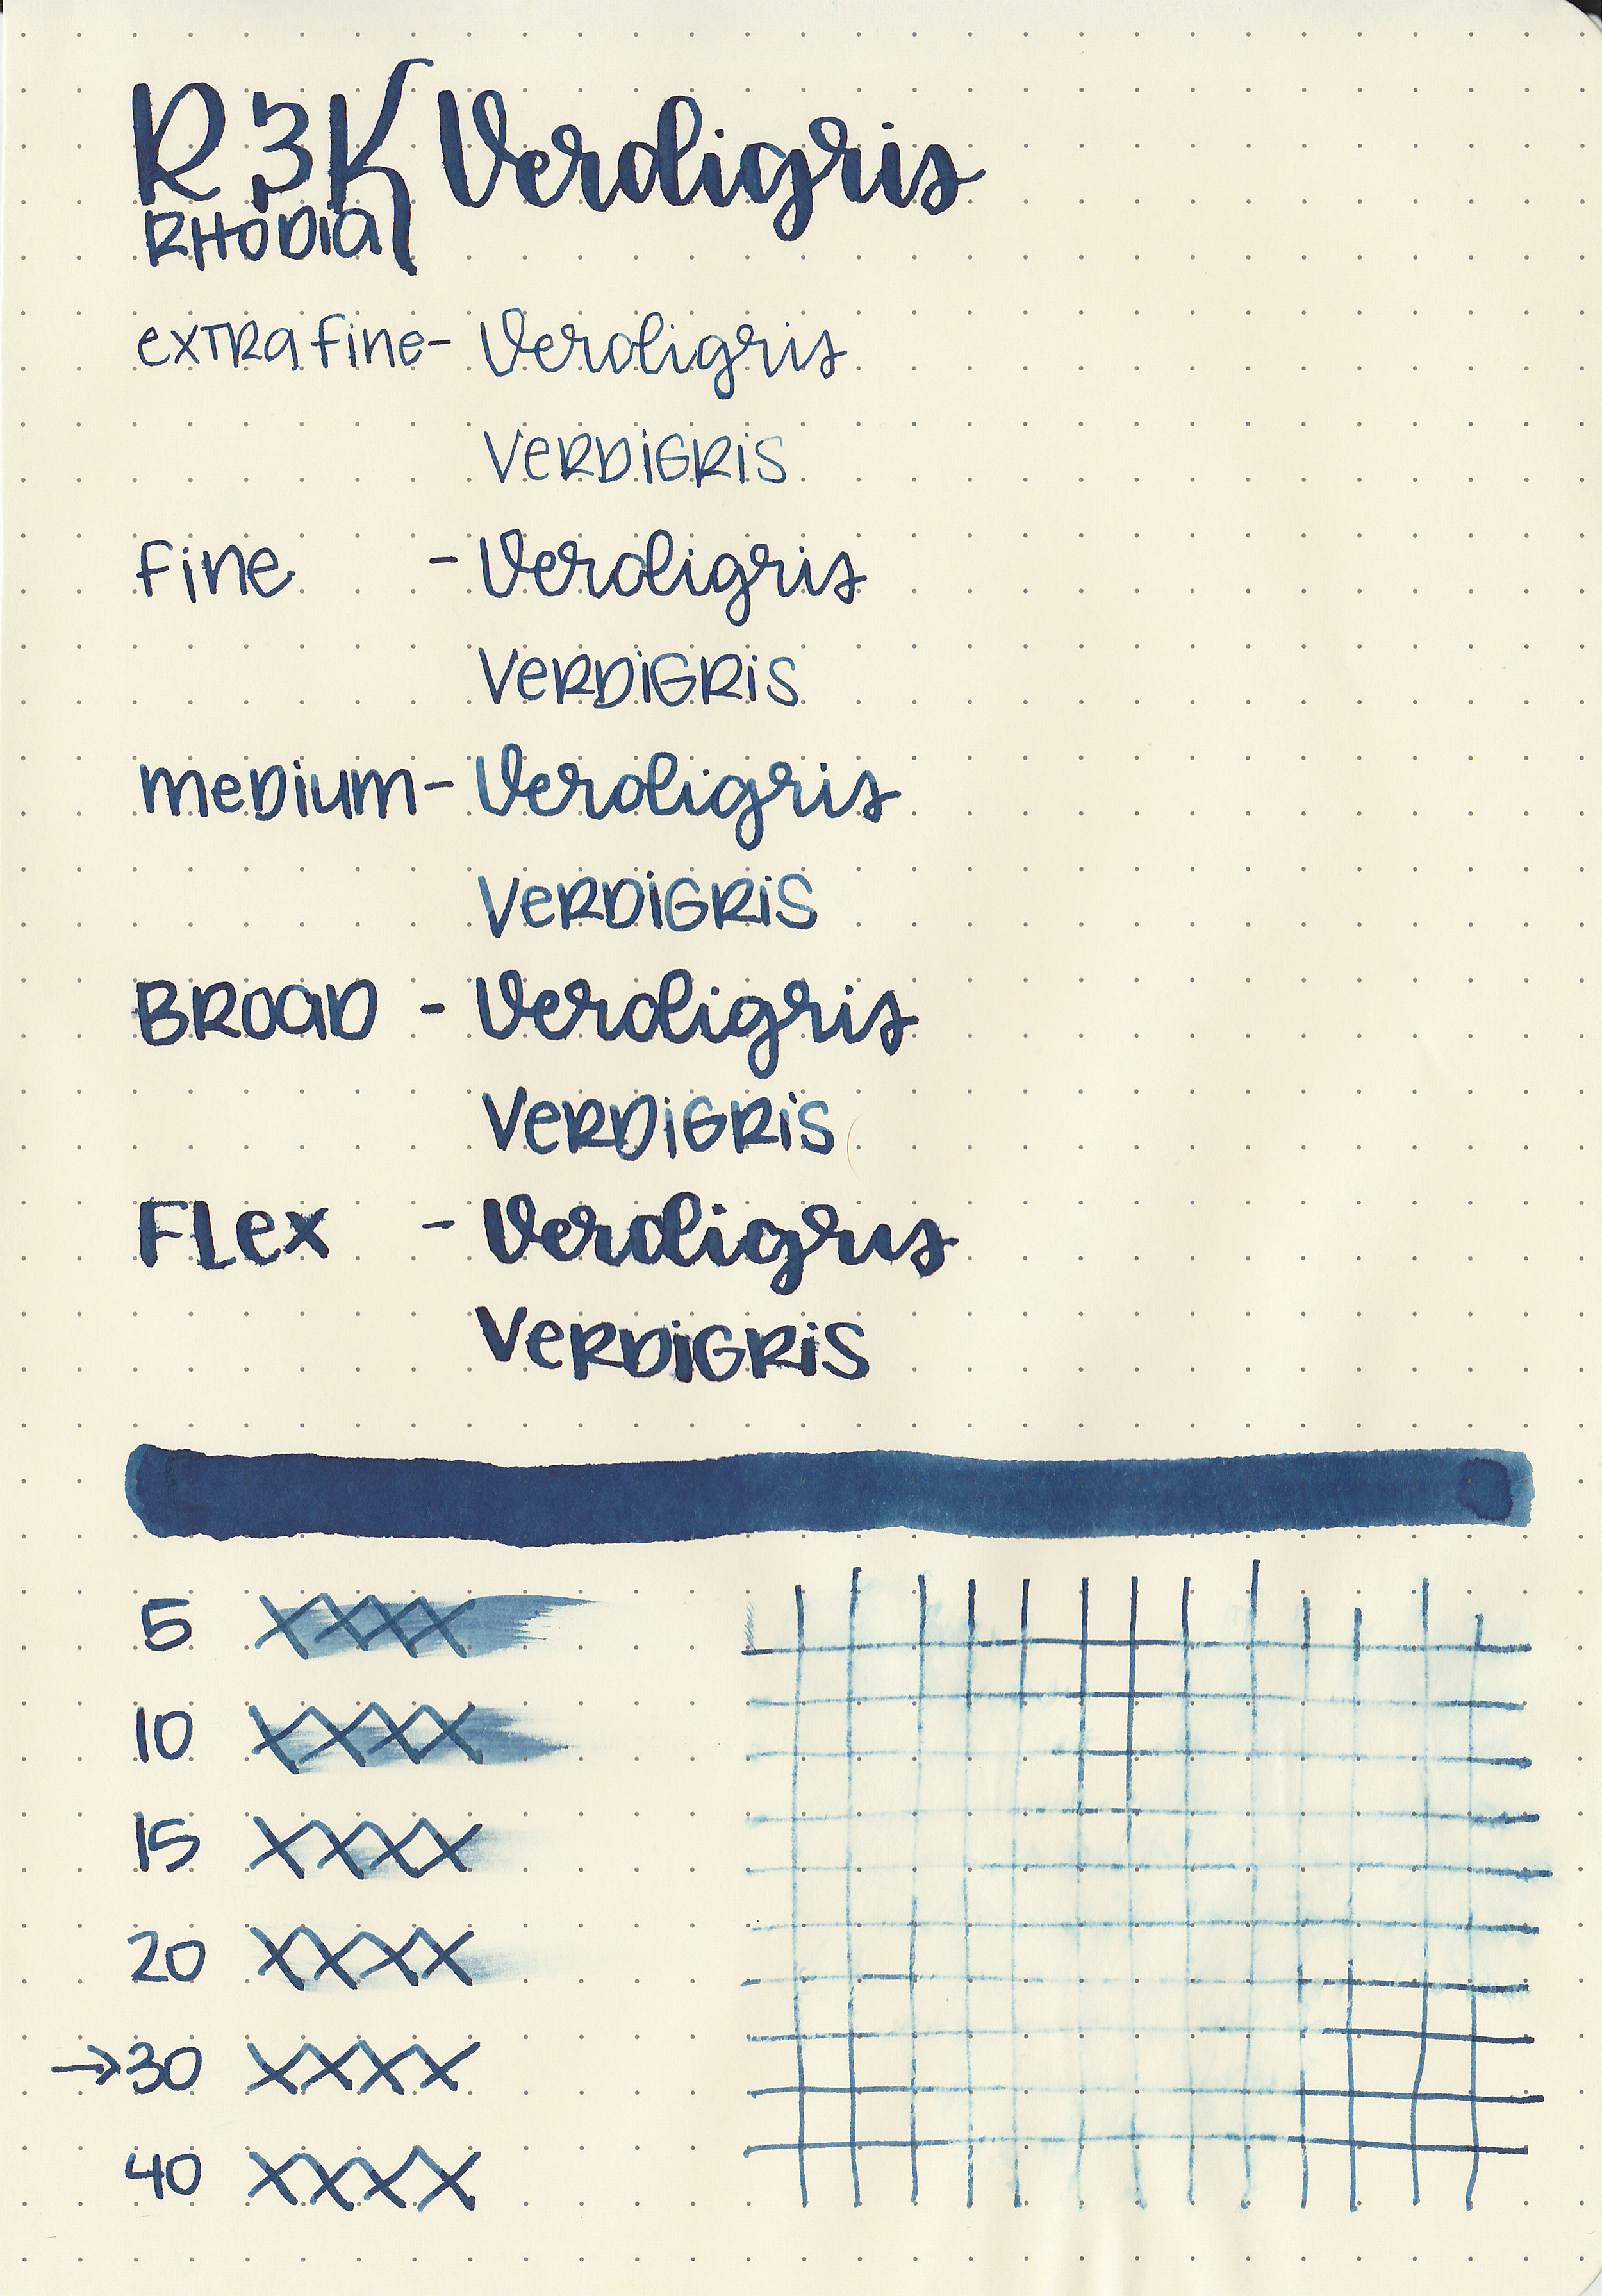 R3K Verdigris
RHODia
exTRa fine- Verdigris
VeRDiGRiS
fine - Verdigris
VeRDiGRiS
meDium- Verdigris
VeRDiGRiS
BROaD - Verdigris
VeRDiGRiS
FLex - Verdigris
VeRDiGRiS
5 XXXX
10 XXXX
15 XXXX
20 XXXX
→30 XXXX
40 XXXX